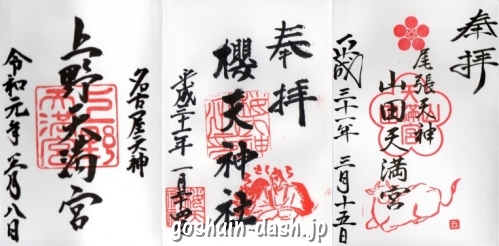 奉拝
尾張天神
山田天満宮
平成三十一年 三月十五日
奉拝
櫻天神社
平成三十一年 一月十四日
名古屋天神
上野天満宮
令和元年 五月八日
goshuin-dash.jp